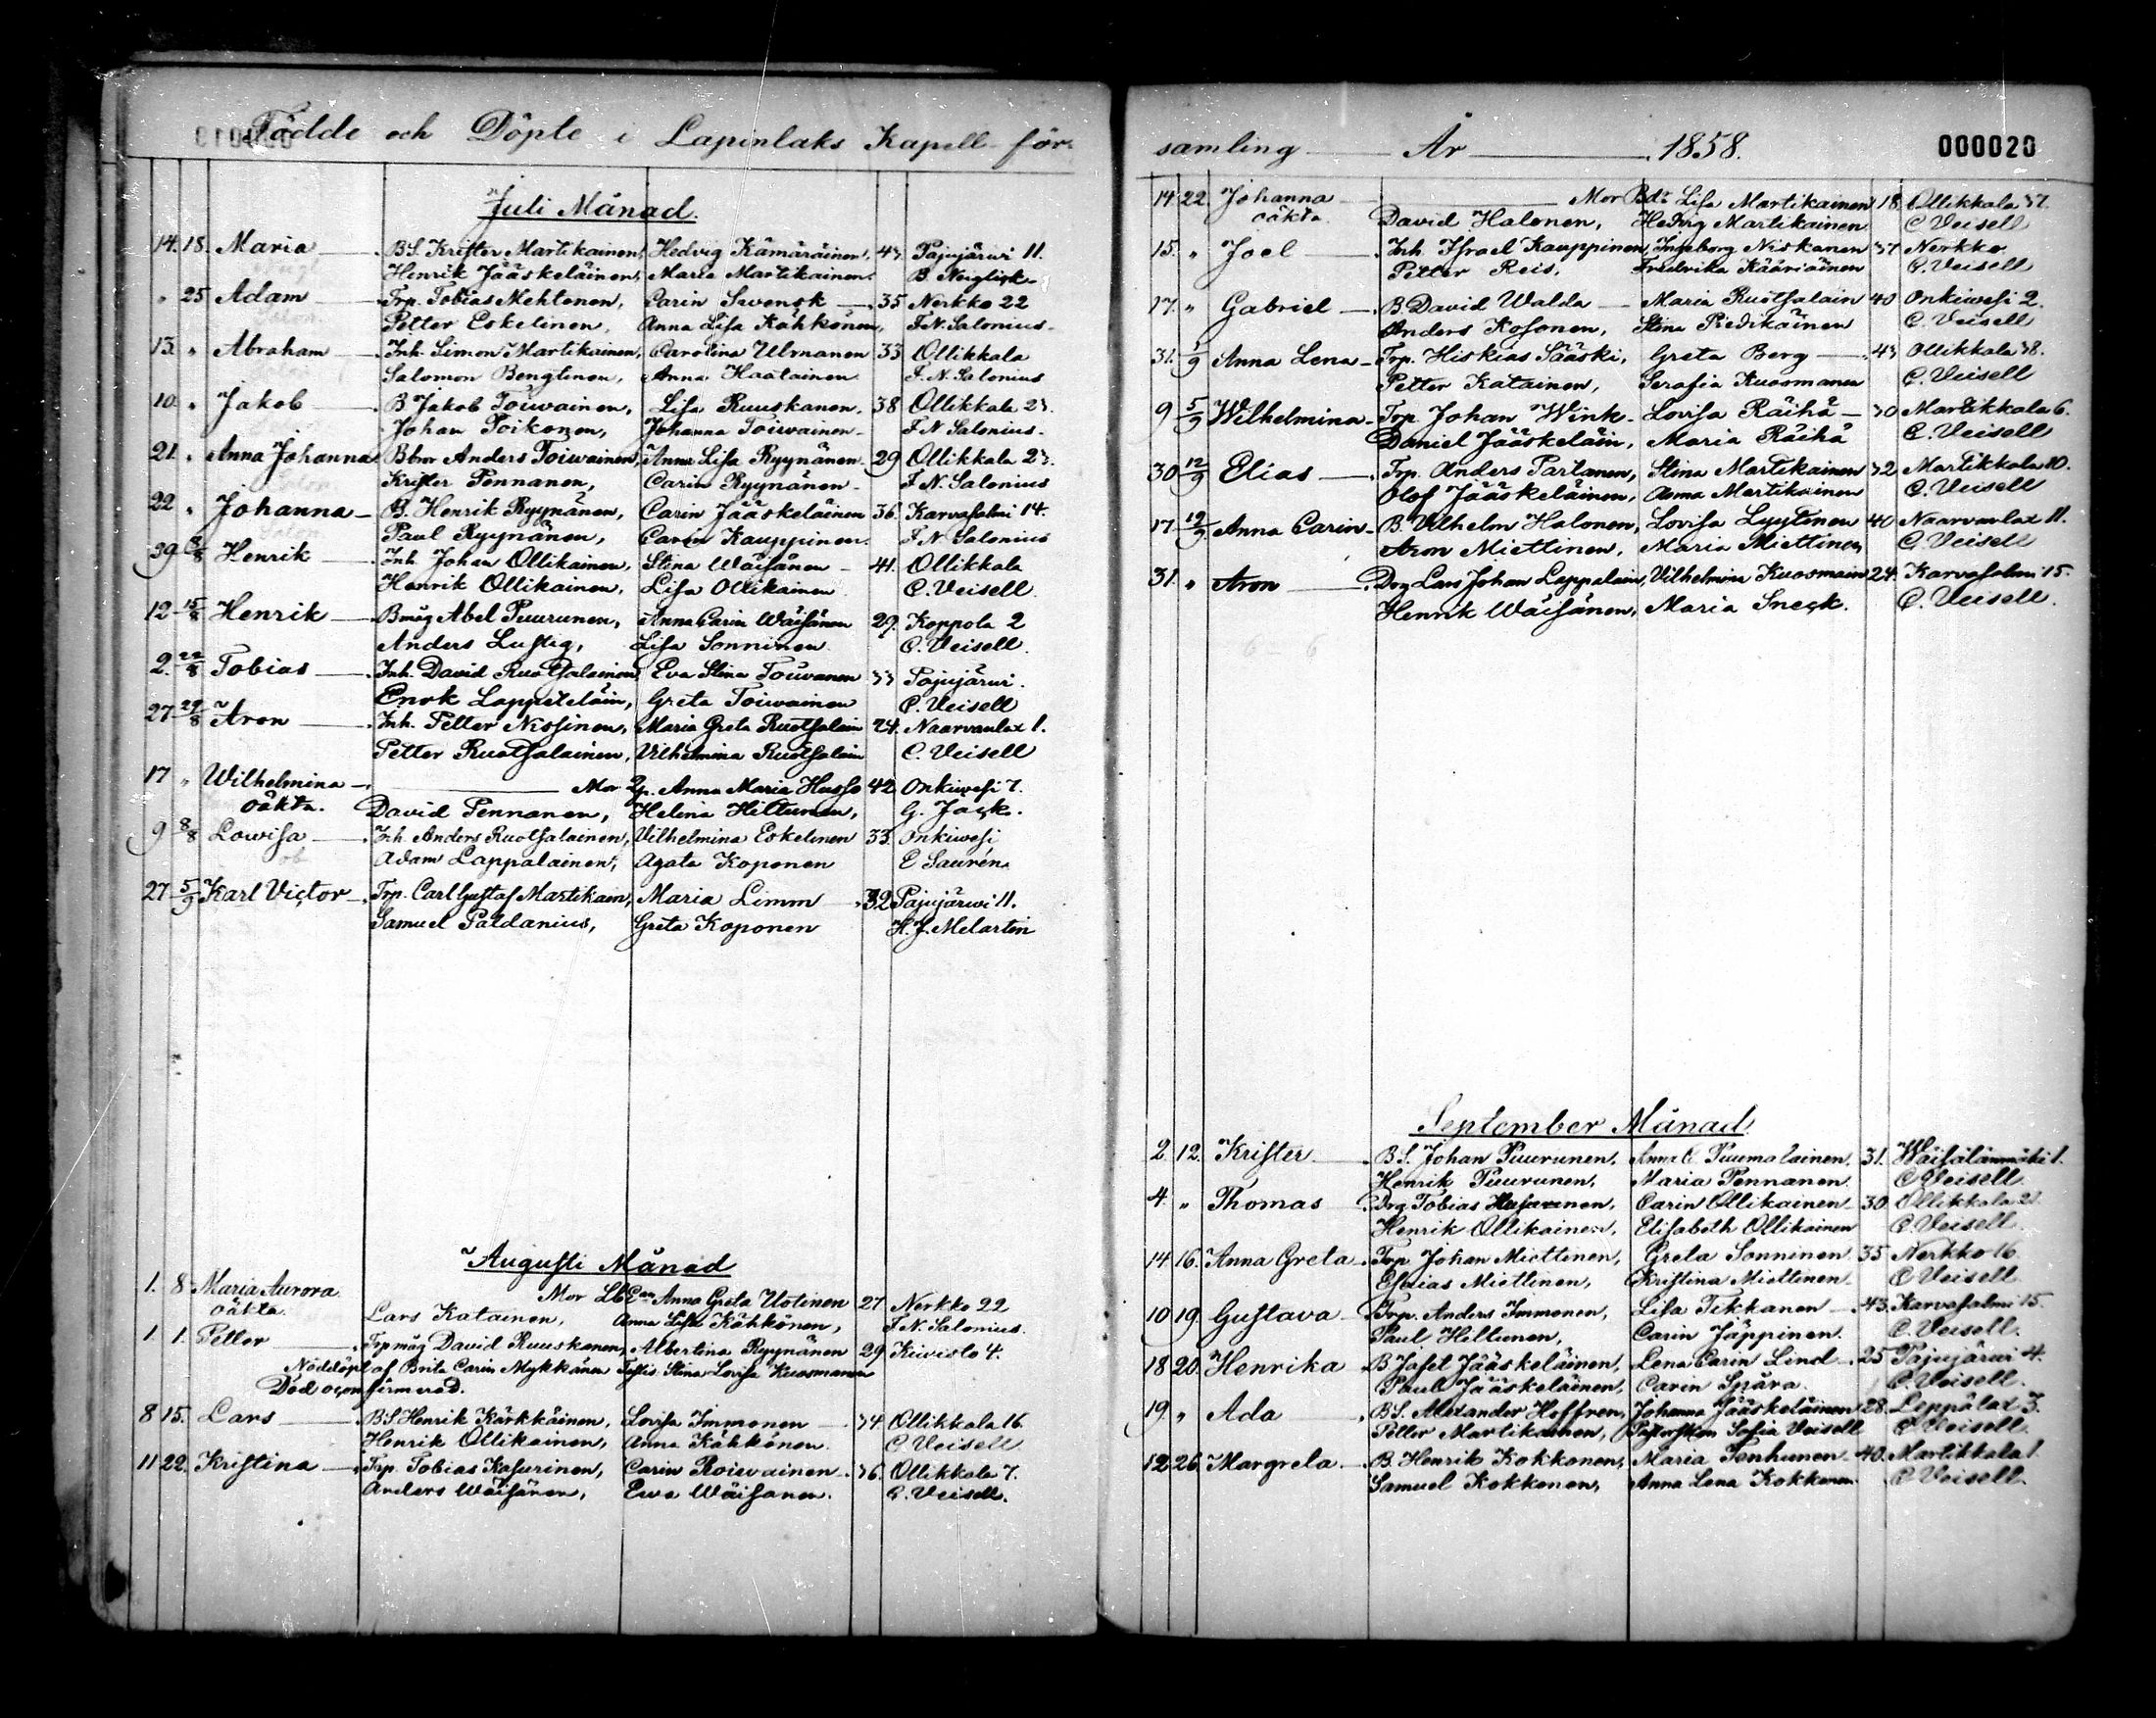 Födde och Döpte i Lapinlaks Kapell för-
Juli Månad.
14. 18. Maria BS. Krister Martikainen, Hedvig Kämäräinen, 43 Pajujärwi 11.
Henrik Jääskeläinen, Maria Martikainen. B. Neiglick
" 25 Adam Trp. Tobias Mehtonen, Carin Swensk 35 Nerkko 22
Petter Eskelinen, Anna Lisa Kähkönen, F.N. Salonius
13. " Abraham Inh. Simon Martikainen, Carolina Ulmanen 33 Ollikkala
Salomon Bengtinen, Anna Haatainen F.N. Salonius
10. " Jakob B Jakob Toiwainen, Lisa Ruuskanen. 38 Ollikkala 23.
Johan Poikonen, Johanna Toiwainen F.N Salonius
21. " Anna Johanna Bbror Anders Toiwainen, Anna Lisa Ryynänen 29 Ollikkala 23.
Krister Pennanen, Carin Ryynänen F.N. Salonius
22 " Johanna B. Henrik Ryynänen, Carin Jääskeläinen 36. Karvasalmi 14.
Paul Ryynänen, Carin Kauppinen. F.N Salonius
29 8/8 Henrik Inh. Johan Ollikainen, Stina Wäisänen 41. Ollikkala
Henrik Ollikainen, Lisa Ollikainen C. Veisell
12 15/8 Henrik Bmåg Abel Puurunen, Anna Carin Wäisänen 29. Koppola 2
Anders Lustig, Lisa Sonninen C. Veisell.
2. 22/8 Tobias Inh. David Ruotsalainen, Eva Stina Toiwanen 33 Pajujärwi.
Enok Lappeteläin, Greta Toiwainen C. Veisell
27 29/8 Aron Inh. Petter Nissinen, Maria Greta Ruotsalain 24. Naarvanlax 1.
Petter Ruotsalainen, Vilhelmina Ruotsalain C. Veisell
17 " Wilhelmina Mor Anna Maria Husso 42 Onkiwesi 7.
oäkta. David Pennanen, Helena Hiltunen, G. Jack.
9 8/8 Lowisa Inh Anders Ruotsalainen, Vilhelmina Eskelinen 33. Onkiwesi
Adam Lappalainen, Agata Koponen E Saurén
27 5/9 Karl Victor Trp. Carl Gustaf Martikain, Maria Limm 32 Pajujärwi 11.
Samuel Paldanius, Greta Koponen H.J. Melartin
Augusti Månad
1. 8 Maria Aurora Mor Anna Greta Uotinen 27. Nerkko 22
oäkta. Lars Katainen, Anna Lisa Kähkönen, F.N. Salonius.
1. 1. Petter Trpmåg David Ruuskanen, Albertina Ryynänen 29. Kiwisto 4.
Nöddöpt af Brita Carin Mykkänen Testis Stina Lovisa Kuosmanen
Död oconfirmerad.
8 15. Lars BS Henrik Kärkkäinen, Lovisa Immonen 34. Ollikkala 16
Henrik Ollikainen, Anna Kähkönen. C Veisell
11 22. Kristina Trp. Tobias Kasurinen, Carin Roiwainen 36. Ollikkala 7.
Anders Wäisänen, Ewa Wäisänen. C. Veisell.
samling År 1858. 000020
14. 22. Johanna Mor Lisa Martikainen 18. Ollikkala 37.
oäkta David Halonen, Hedvig Martikainen C Veisell
15. " Joel Inh. Israel Kauppinen, Ingeborg Niskanen 37 Nerkko
Petter Reis, Fredrika Kääriäinen C. Veisell
17. " Gabriel B. David Walda Maria Ruotsalain 40 Onkiwesi 2.
Anders Kosonen, Stina Piedikäinen C. Veisell
31. 1/9 Anna Lena Trp. Hiskias Sääski, Greta Berg 43 Ollikkala 38.
Petter Katainen, Serafia Kuosmanen C. Veisell
9 5/9 Wilhelmina Trp Johan Wink Lovisa Räihä 30 Martikkala 6.
Daniel Jääskeläin, Maria Räihä C. Veisell
30 12/9 Elias Trp. Anders Partanen, Stina Martikainen 32 Martikkala 10.
Olof Jääskeläinen, Anna Martikainen C. Veisell
17. 19/9 Anna Carin B. Vilhelm Halonen, Lovisa Lyytinen 40 Naarvanlax 11.
Aron Miettinen, Maria Miettinen C. Veisell
31. " Aron Drg Lars Johan Lappalain, Vilhelmina Kuosmain 24. Karvasalmi 15.
Henrik Wäisänen, Maria Sneck. C. Veisell.
September Månad.
2 12. Krister BS. Johan Puurunen, Anna C Puumalainen. 31. Wäisälänmäki 1.
Henrik Puurunen, Maria Pennanen C Veisell
4. " Thomas Drg Tobias Carin Ollikainen 30 Ollikkala 21.
Henrik Ollikainen, Elisabeth Ollikainen C. Veisell.
14 16. Anna Greta Trp Johan Miettinen, Greta Sonninen 35 Nerkko 16
Esaias Miettinen, Kristina Miettinen C Veisell
10 19. Gustava Trp. Anders Immonen, Lisa Tikkanen 43. Karvasalmi 15.
Paul Hiltunen, Carin Jäppinen. C. Veisell.
18 20. Henrika B Jafet Jääskeläinen, Lena Carin Lind 25 Pajujärwi 4.
Paul Jääskeläinen, Carin Spåra C. Veisell.
19. " Ada BS. Alexander Hoffren, Johanna Jääskeläinen 28. Leppälax 3.
Petter Martikainen, Sofia Veisell C Veisell.
12 26. Margreta B. Henrik Kokkonen, Maria Tenhunen 40. Martikkala 1.
Samuel Kokkonen, Anna Lena Kokkonen C Veisell.